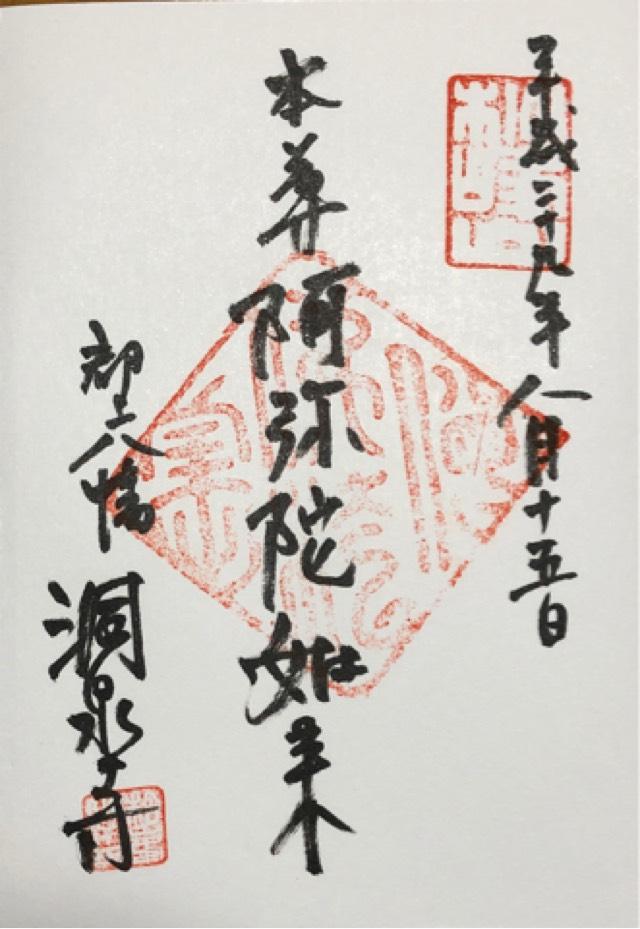 平成二十九年八月十五日
本尊阿弥陀如来
郡上八幡
洞泉寺